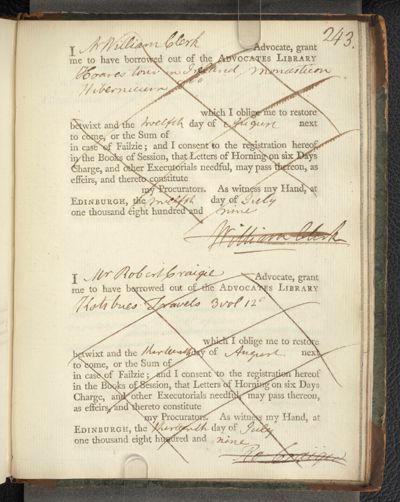 243.
I Mr William Clerk Advocate, grant
me to have borrowed out of the ADVOCATES LIBRARY
Hoares tour in Ireland, Monasticon
Hibernicum
which I oblige me to restore
betwixt and the twelfth day of August next
to come, or the Sum of
in case of Failzie; and I consent to the registration hereof
in the Books of Session, that Letters of Horning on six Days
Charge, and other Executorials needful, may pass thereon, as
effeirs, and thereto constitute
my Procurators. As witness my Hand, at
EDINBURGH, the twelfth day of July
one thousand eight hundred and nine
William Clerk
I Mr Robert Craigie Advocate, grant
me to have borrowed out of the ADVOCATES LIBRARY
Kotzbues Travels 3 vol 12°
which I oblige me to restore
betwixt and the thirteenth day of August next
to come, or the Sum of
in case of Failzie; and I consent to the registration hereof
in the Books of Session, that Letters of Horning on six Days
Charge, and other Executorials needful, may pass thereon,
as effeirs, and thereto constitute
my Procurators. As witness my Hand, at
EDINBURGH, the thirteenth day of July
one thousand eight hundred and nine
Ro Craigie